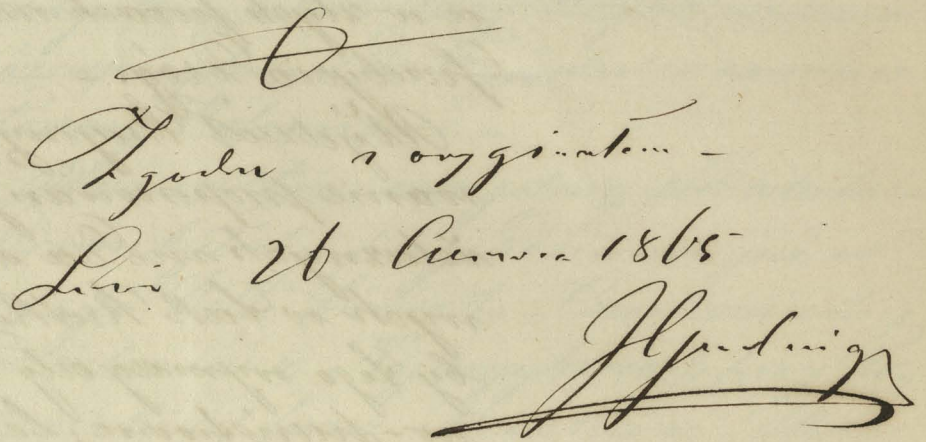 Zgodne z oryginałem –
Lwów 26 Czerwca 1865